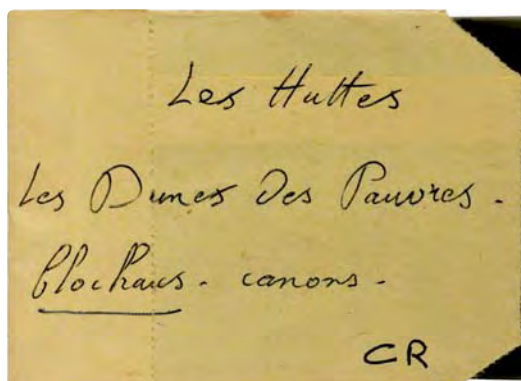 Les Huttes
Les Dunes Des Pauvres -
blockaus - canons -
CR